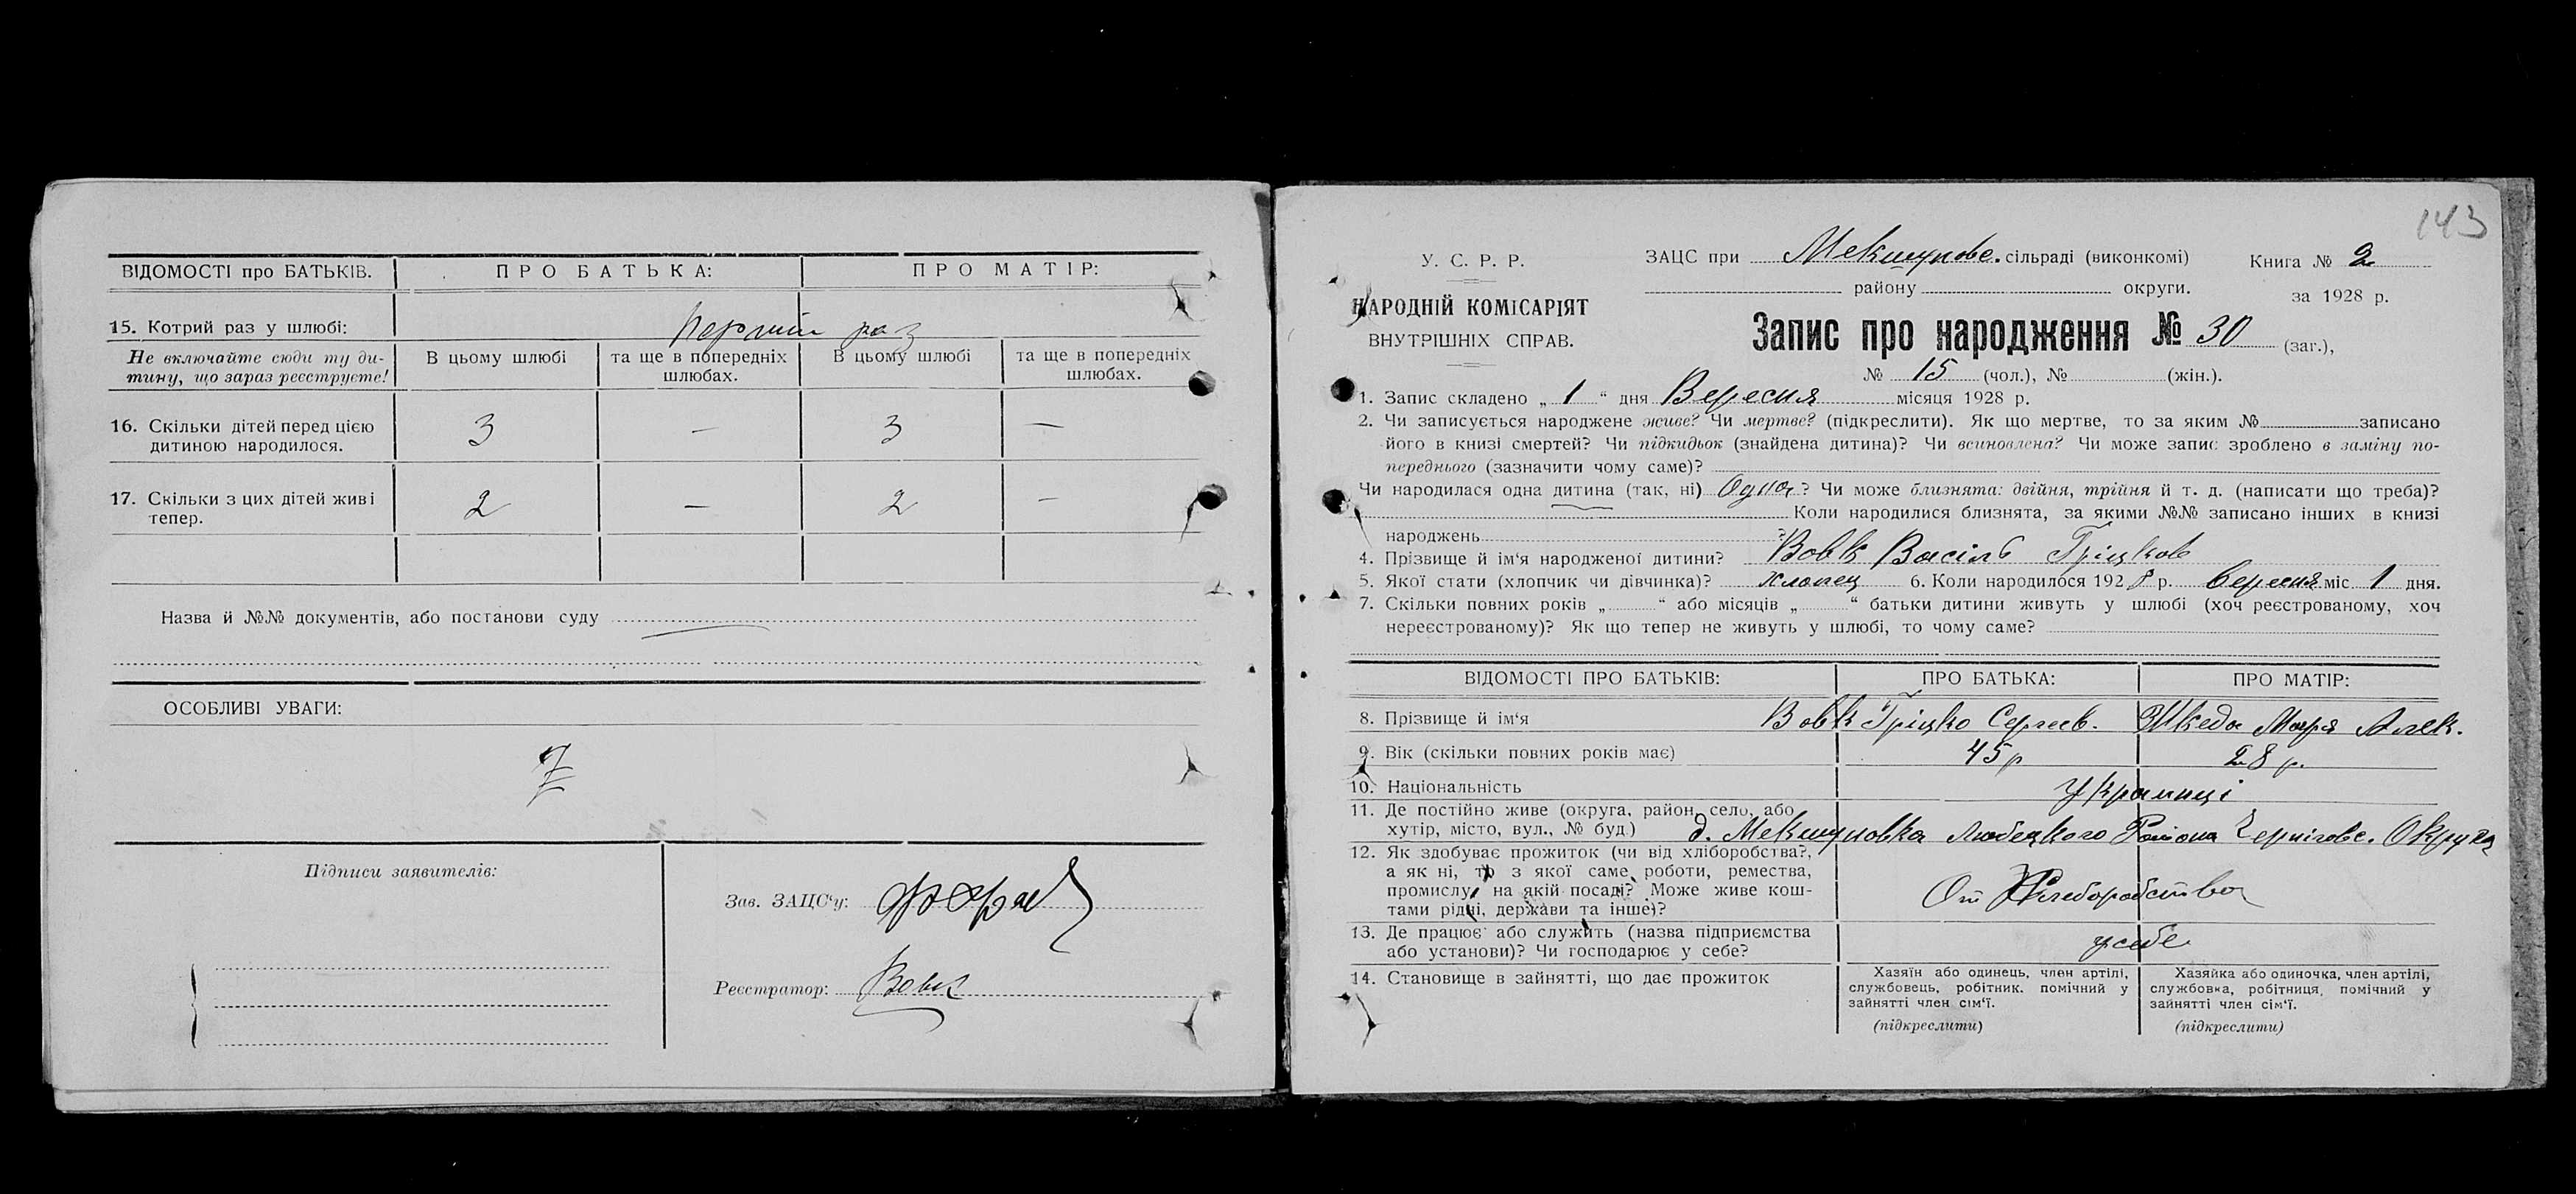 ВІДОМОСТІ про БАТЬКІВ. ПРО БАТЬКА: ПРО МАТІР:
15. Котрий раз у шлюбі: раз
Не включайте сюди ту ди-
тину, що зараз реєструєте!
В цьому шлюбі
та ще в попередніх
шлюбах.
В цьому шлюбі
та ще в попередніх
шлюбах.
16. Скільки дітей перед цією
дитиною народилося.
3 — 3 —
17. Скільки з цих дітей живі
тепер.
2 — 2 —
Назва й №№ документів, або постанови суду
ОСОБЛИВІ УВАГИ:
Підписи заявителів:
Зав. ЗАЦС‘у:
Реєстратор: Вовк
143
У. С. Р. Р.
НАРОДНІЙ КОМІСАРІЯТ
ВНУТРІШНІХ СПРАВ.
ЗАЦС при Мекшуновс. сільраді (виконкомі)
району округи.
Книга № 2
за 1928 р.
Запис про народження № 30 (заг.),
№ 15 (чол.), № (жін.).
1. Запис складено „ 1 “ дня Вересня місяця 1928 р.
2. Чи записується народжене живе? Чи мертве? (підкреслити). Як що мертве, то за яким № записано
його в книзі смертей? Чи підкидьок (знайдена дитина)? Чи всиновлена? Чи може запис зроблено в заміну по-
переднього (зазначити чому саме)?
Чи народилася одна дитина (так, ні) Одна ? Чи може близнята: двійня, трійня й т. д. (написати що треба)?
Коли народилися близнята, за якими №№ записано інших в книзі
народжень ?
4. Прізвище й ім‘я народженої дитини? Вовк Василь Гріцков
5. Якої статі (хлопчик чи дівчинка)? хлопец 6. Коли народилося 192 8 р. вересня міс 1 дня.
7. Скільки повних років „ “ або місяців „ “ батьки дитини живуть у шлюбі (хоч реєстрованому, хоч
нереєстрованому)? Як що тепер не живуть у шлюбі, то чому саме?
ВІДОМОСТІ ПРО БАТЬКІВ: ПРО БАТЬКА: ПРО МАТІР:
8. Прізвище й ім‘я Вовк Гріцко Сергеев. Шкеда Маря Алек.
9. Вік (скільки повних років має) 45 р 28 р.
10. Національність Украинці
11. Де постійно живе (округа, район, село, або
хутір, місто, вул., № буд.) д. Мекшуновка Любецкого Района Чернiговс. Округа
12. Як здобуває прожиток (чи від хліборобства?,
а як ні, то з якої саме роботи, ремества,
промислу, на якій посаді? Може живе кош-
тами рідні, держави та інше)?
От Хлеборобства
13. Де працює або служить (назва підприємства
або установи)? Чи господарює у себе?
усебе
14. Становище в зайнятті, що дає прожиток
Хазяїн або одинець, член артілі,
службовець, робітник. помічний у
зайнятті член сім‘ї.
(підкреслити)
Хазяйка або одиночка, член артілі,
службовка, робітниця, помічний у
зайнятті член сім‘ї.
(підкреслити)